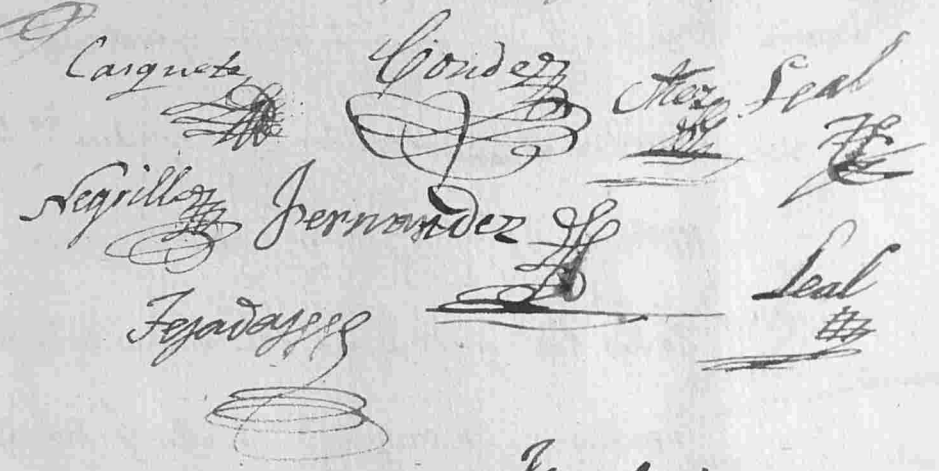 Casquete Conde Leal
Negrillo Fernandez
Leal
Tejada